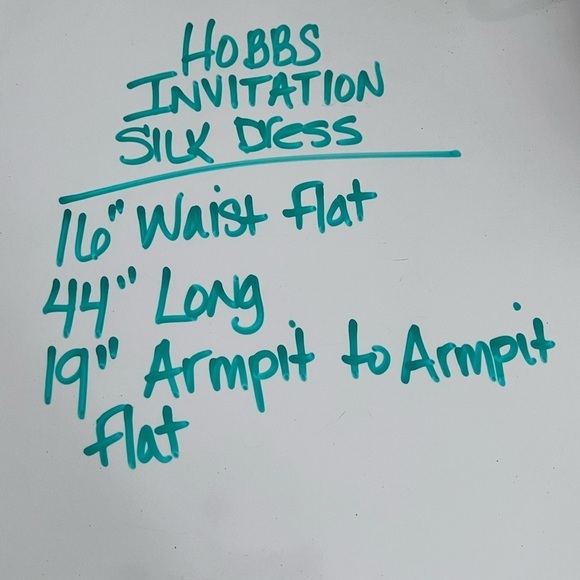 HOBBS
INVITATION
SILK Dress
16" Waist flat
44" Long
19" Armpit to Armpit
flat